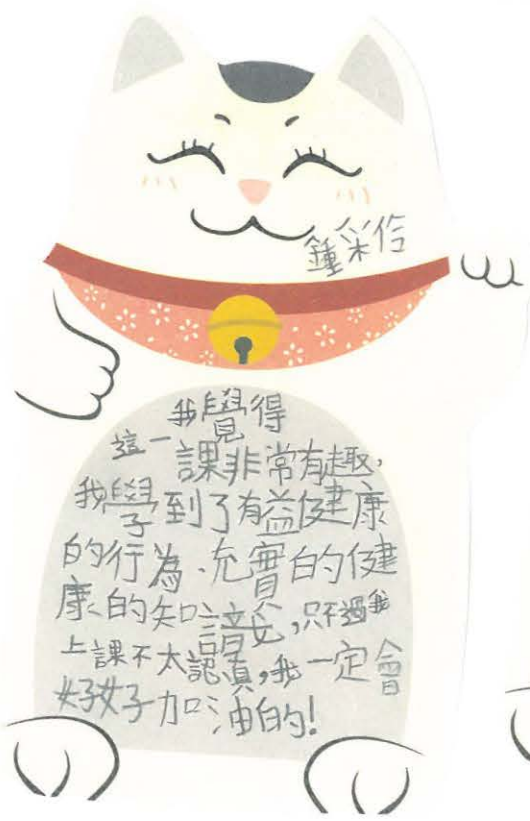 鍾采伶
我覺得
這一課非常有趣,
我學到了有益健康
的行為、充實的健
康的知識,只不過我
上課不太認真,我一定會
好好加油的!